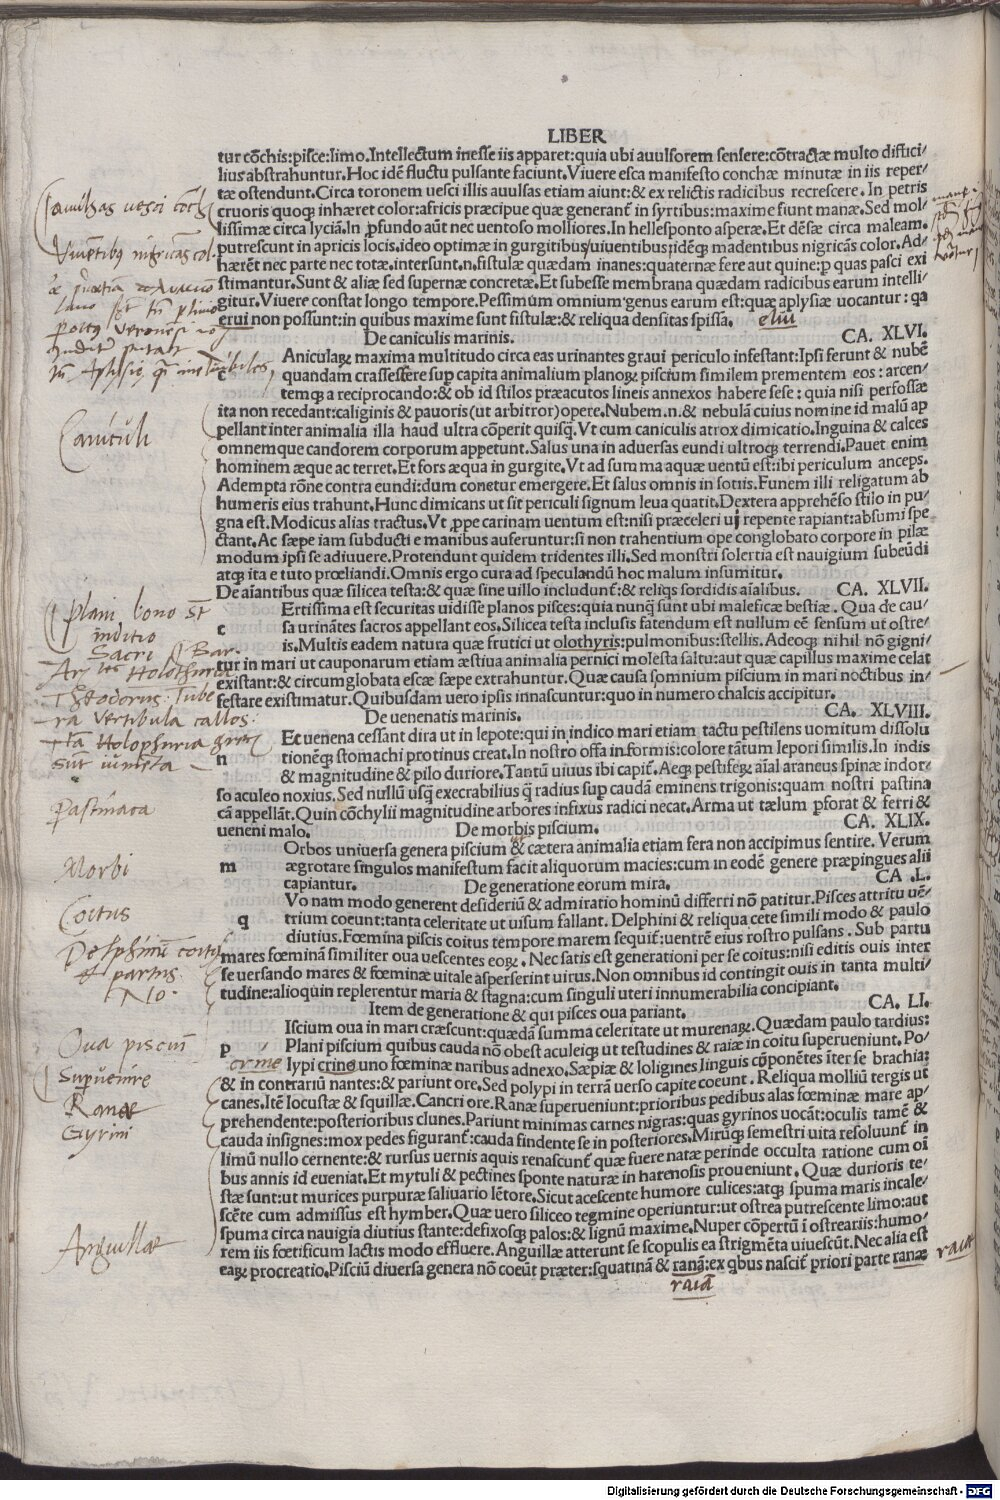 LIBER
tur cōchis:pisce:limo.Intellectum inesse iis apparet:quia ubi auulsorem sensere:cōtractæ multo difficí
lius abstrahuntur.Hoc idē fluctu pulsante faciunt.Viuere esca manifesto conchæ minutæ in iis reper/
tæ ostendunt.Circa toronem uesci illis auulsas etiam aiunt:& ex relictis radicibus recrescere. In petris
cruoris quoqꝫ inhæret color:africis præcipue quæ generant̄ in syrtibus:maxime fiunt manæ. Sed mol/
lissimæ circa lyciā. In ꝓfundo aūt nec uentoso molliores. In hellesponto asperæ. Et dēsæ circa maleam.
putrescunt in apricis locis.ideo optimæ in gurgitibus/uiuentibus:idēqꝫ madentibus nigricās color. Ad/
hærēt nec parte nec totæ.intersunt.n.fistulæ quædam inanes:quaternæ fere aut quine:ꝑ quas pasci exi
stimantur. Sunt & aliæ sed supernæ concretæ. Et subesse membrana quædam radicibus earum intelli/
gitur. Viuere constat longo tempore. Pessimum omnium genus earum est:quæ aplysiæ uocantur: qa
erui non possunt:in quibus maxime sunt fistulæ:& reliqua densitas spissa. elui
De caniculis marinis. CA. XLVI.
c Aniculaꝝ maxima multitudo circa eas urinantes graui periculo infestant:Ipsi ferunt & nubē
quandam crassescere suꝑ capita animalium planoꝝ piscium similem prementem eos: arcen/
temqꝫ a reciprocando:& ob id stilos præacutos lineis annexos habere sese: quia nisi perfossæ
ita non recedant:caliginis & pauoris(ut arbitror)opere. Nubem.n.& nebulā cuius nomine id malū ap
pellant inter animalia illa haud ultra cōperit quisq̄. Vt cum caniculis atrox dimicatio. Inguina & calces
omnemque candorem corporum appetunt. Salus una in aduersas eundi ultroqꝫ terrendi. Pauet enim
hominem æque ac terret. Et fors æqua in gurgite. Vt ad summa aquæ uentū est:ibi periculum anceps.
Adempta rōne contra eundi:dum conetur emergere. Et salus omnis in sotiis. Funem illi religatum ab
humeris eius trahunt. Hunc dimicans ut sit periculi signum leua quatit. Dextera apprehēso stilo in pu/
gna est. Modicus alias tractus. Vt ꝓpe carinam uentum est:nisi præceleri ui repente rapiant:absumi spe
ctant. Ac sæpe iam subducti e manibus auferuntur:si non trahentium ope conglobato corpore in pilæ
modum ipsi se adiuuere. Protendunt quidem tridentes illi. Sed monstri solertia est nauigium subeūdi
atqꝫ ita e tuto prœliandi. Omnis ergo cura ad speculandū hoc malum insumitur.
De aīantibus quæ silicea testa:& quæ sine uillo includunt̄:& reliqs sordidis aīalibus. CA. XLVII.
c Ertissima est securitas uidisse planos pisces:quia nunq̄ sunt ubi maleficæ bestiæ. Qua de cau/
sa urinātes sacros appellant eos. Silicea testa inclusis fatendum est nullum eē sensum ut ostre/
is. Multis eadem natura quæ frutici ut olothyris:pulmonibus:stellis. Adeoqꝫ nihil nō gigni/
tur in mari ut cauponarum etiam æstiua animalia pernici molesta saltu:aut quæ capillus maxime celat
existant:& circumglobata escæ sæpe extrahuntur. Quæ causa somnium piscium in mari noctibus in/
festare existimatur. Quibusdam uero ipsis innascuntur:quo in numero chalcis accipitur.
De uenenatis marinis. CA. XLVIII.
n Ec uenena cessant dira ut in lepote:qui in indico mari etiam tactu pestilens uomitum dissolu
tionēqꝫ stomachi protinus creat. In nostro offa informis:colore tātum lepori similis. In indis
& magnitudine & pilo duriore. Tantū uiuus ibi capit̄. Aeqꝫ pestifeꝝ aīal araneus spinæ indor/
so aculeo noxius. Sed nullū usq̄ execrabilius q̄ radius suꝑ caudā eminens trigonis:quam nostri pastina
cā appellāt. Quin cōchylii magnitudine arbores infixus radici necat. Arma ut tælum ꝑforat & ferri &
ueneni malo. De morbis piscium. CA. XLIX.
m Orbos uniuersa genera piscium & cætera animalia etiam fera non accipimus sentire. Verum
ægrotare singulos manifestum facit aliquorum macies:cum in eodē genere præpingues alii
capiantur. De generatione eorum mira. CA .L.
q Vo nam modo generent desideriū & admiratio hominū differri nō patitur. Pisces attritu uē/
trium coeunt:tanta celeritate ut uisum fallant. Delphini & reliqua cete simili modo & paulo
diutius. Fœmina piscis coitus tempore marem sequit̄:uentrē eius rostro pulsans . Sub partu
mares fœminā similiter oua uescentes eoꝝ. Nec satis est generationi per se coitus:nisi editis ouis inter
se uersando mares & fœminæ uitale asperserint uirus. Non omnibus id contingit ouis in tanta multi/
tudine:alioquin replerentur maria & stagna:cum singuli uteri innumerabilia concipiant.
Item de generatione & qui pisces oua pariant. CA. LI.
p Iscium oua in mari cræscunt:quædā summa celeritate ut murenaꝝ. Quædam paulo tardius:
Plani piscium quibus cauda nō obest aculeiqꝫ ut testudines & raiæ in coitu superueniunt. Po/
lypi crino uno fœminæ naribus adnexo. Sæpiæ & loligines linguis cōponētes īter se brachia:
& in contrariū nantes:& pariunt ore. Sed polypi in terrā uerso capite coeunt . Reliqua molliū tergis ut
canes. Itē locustæ & squillæ. Cancri ore. Ranæ superueniunt:prioribus pedibus alas fœminæ mare ap/
prehendente:posterioribus clunes. Pariunt minimas carnes nigras:quas gyrinos uocāt:oculis tamē &
cauda insignes:mox pedes figurant̄:cauda findente se in posteriores. Mirūqꝫ semestri uita resoluunt̄ in
limū nullo cernente:& rursus uernis aquis renascunt̄ quæ fuere natæ perinde occulta ratione cum oī
bus annis id eueniat. Et mytuli & pectines sponte naturæ in harenosis proueniunt. Quæ durioris te/
stæ sunt:ut murices purpuræ saliuario lētore. Sicut acescente humore culices:atqꝫ spuma maris incale/
scēte cum admissus est hymber. Quæ uero siliceo tegmine operiuntur:ut ostrea putrescente limo:aut
spuma circa nauigia diutius stante:defixosqꝫ palos:& lignū maxime. Nuper cōpertū ī ostreariis:humo/
rem iis fœtificum lactis modo effluere. Anguillæ atterunt se scopulis ea strigmēta uiuescūt. Nec alia est
eaꝝ procreatio. Pisciū diuersa genera nō coeūt præter:squatinā & ranā:ex qbus nascit̄ priori parte ranæ
raia
raiā
Caniculi
Plani bono st̄
inditio
Sacri
Theodorus. Tube
ra Vertibula callos
Pastinaca
Morbi
Coitus
Delphinū coitus
et partus
Oua pisciū
Supuenire
Ranæ
Gyrini
Anguillæ
crine
Digitalisierung gefördert durch die Deutsche Forschungsgemeinschaft - DFG